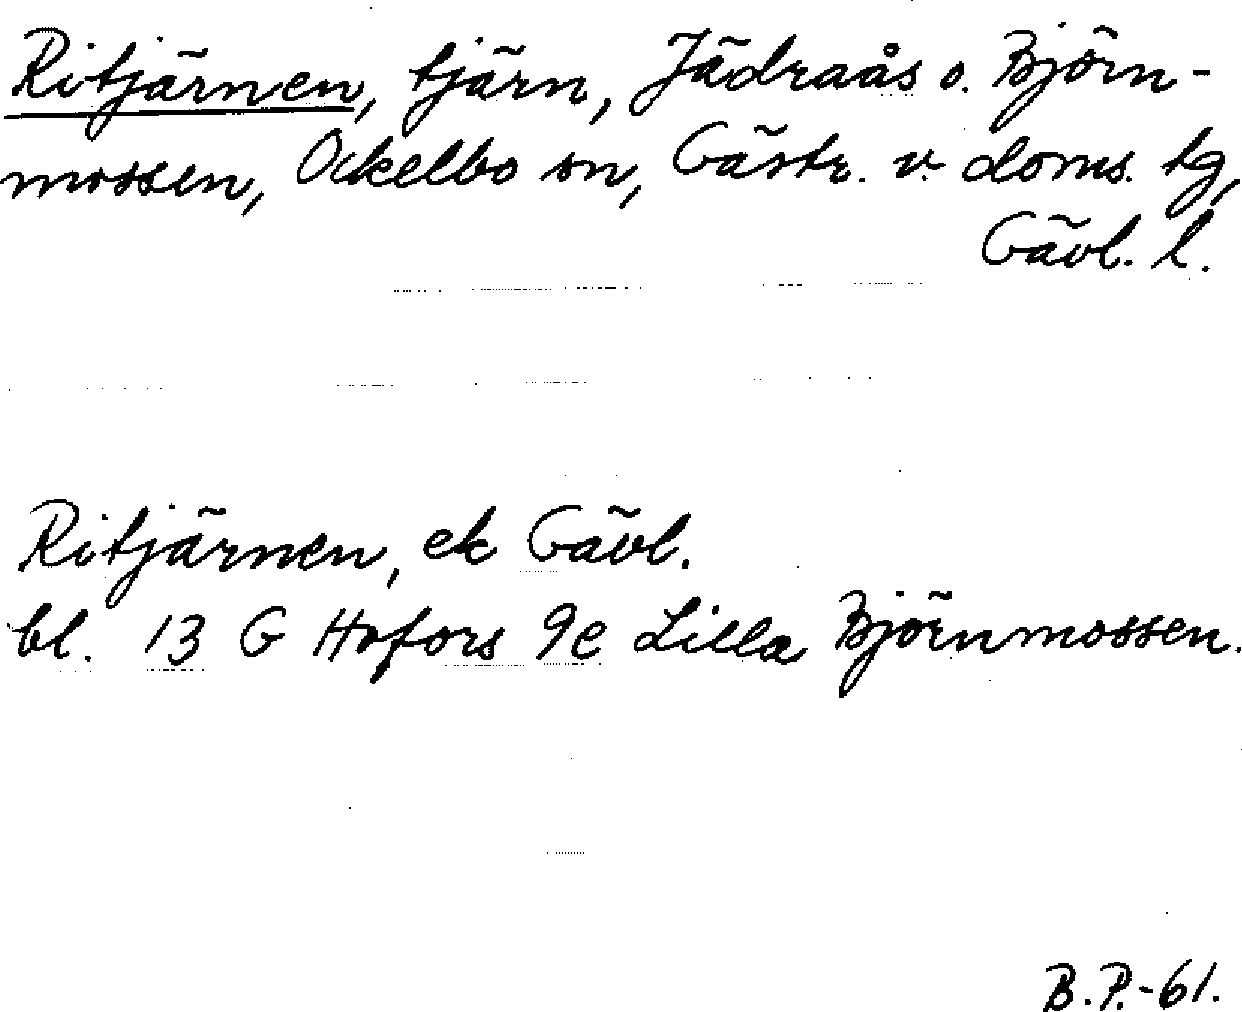 Ritjärnen, tjärn, Jädraås o. Björn-
mossen, Ockelbo sn, Gästr. v. doms. tg,
Gävl. l.
Ritjärnen, ek Gävl.
bl. 13 G Hofors 9e Lilla Björnmossen.
B.P.-61.